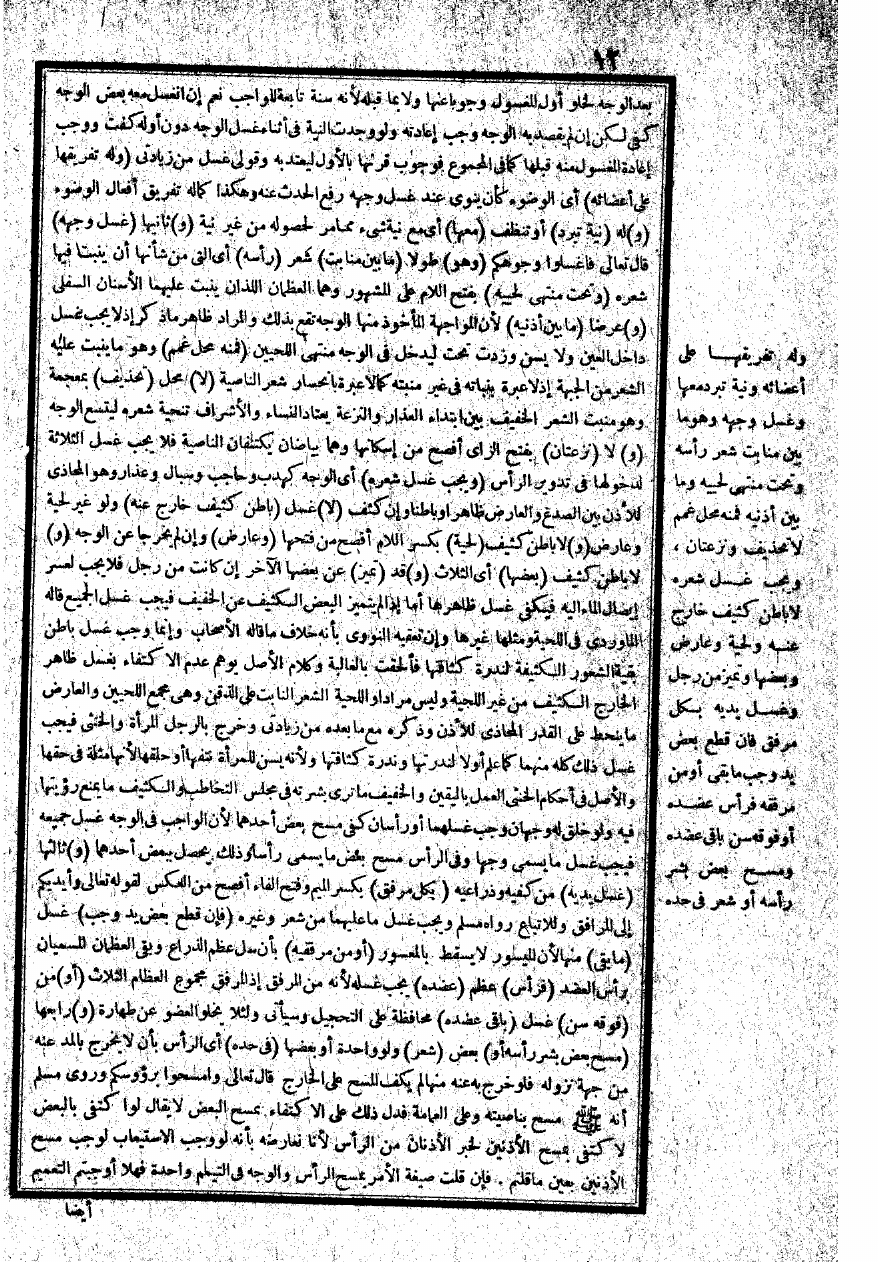 ١٣
بعد الوجه لخلو أول المغسول وجوبا عنها ولا بما قبله لأنه سنة تابعة للواجب نعم إن انغسل معه بعض الوجه
كفى لكن إن لم يقصد به الوجه وجب إعادته ولو وجدت النية فى أثناء غسل الوجه دون أوله كفت ووجب
إعادة المغسول منه قبلها كما فى المجموع فوجوب قرنها بالأول ليعتد به وقولى غسل من زيادتى (وله تفريقها
على أعضائه) أى الوضوء كأن ينوى عند غسل وجهه رفع الحدث عنه وهكذا كما له تفريق أفعال الوضوء
(و) له (نية تبرد) أو تنظف (معها) أى مع نية شىء مما مر لحصوله من غير نية (و) ثانيها (غسل وجهه)
قال تعالى فاغسلوا وجوهكم (وهو) طولا (ما بين منابت) شعر (رأسه) أى التى من شأنها أن ينبت فيها
شعره (وتحت منتهى لحييه) بفتح اللام على المشهور وهما العظمان اللذان ينبت عليهما الأسنان السفلى
(و) عرضا (ما بين أذنيه) لأن المواجهة المأخوذ منها الوجه تقع بذلك والمراد ظاهر ما ذكر إذ لا يجب غسل
داخل العين ولا يسن وزدت تحت ليدخل فى الوجه منتهى اللحيين (فمنه محل غمم) وهو ما ينبت عليه
الشعر من الجبهة إذ لا عبرة بنباته فى غير منبته كما لا عبرة بانحسار شعر الناصية (لا) محل (تحذيف) بمعجمة
وهو منبت الشعر الخفيف بين ابتداء العذار والنزعة يعتاد النساء والأشراف تنحية شعره ليتسع الوجه
(و) لا (نزعتان) بفتح الزاى أفصح من إسكانها وهما بياضان يكتنفان الناصية فلا يجب غسل الثلاثة
لدخولها فى تدوير الرأس (ويجب غسل شعره) أى الوجه كهدب وحاجب وسبال وعذار وهو المحاذى
للأذن بين الصدغ والعارض ظاهرا وباطنا وإن كثف (لا) غسل (باطن كثيف خارج عنه) ولو غير لحية
وعارض (و) لا باطن كثيف (لحية) بكسر اللام أفصح من فتحها (وعارض) وإن لم يخرجا عن الوجه (و)
لا باطن كثيف (بعضها) أى الثلاث (و) قد (تميز) عن بعضها الآخر إن كانت من رجل فلا يجب لعسر
إيصال الماء إليه فيكفى غسل ظاهرها أما إذا لم يتميز البعض الكثيف عن الخفيف فيجب غسل الجميع قاله
الماوردى فى اللحية ومثلها غيرها وإن تعقبه النووى بأنه خلاف ما قاله الأصحاب وإنما وجب غسل باطن
بقية الشعور الكثيفة لندرة كثافتها فألحقت بالغالبة وكلام الأصل يوهم عدم الاكتفاء بغسل ظاهر
الخارج الكثيف من غير اللحية وليس مرادا واللحية الشعر النابت على الذقن وهى مجمع اللحيين والعارض
ما ينحط على القدر المحاذى للأذن وذكره مع ما بعده من زيادتى وخرج بالرجل المرأة والخنثى فيجب
غسل ذلك كله منهما كما علم أولا لندرتها وندرة كثافتها ولأنه يسن للمرأة نتفها أو حلقها لأنها مثلة فى حقها
والأصل فى أحكام الخنثى العمل باليقين والخفيف ما ترى بشرته فى مجلس التخاطب والكثيف ما يمنع رؤيتها
فيه ولو خلق له وجهان وجب غسلهما أو رأسان كفى مسح بعض أحدهما لأن الواجب فى الوجه غسل جميعه
فيجب غسل ما يسمى وجها وفى الرأس مسح بعض ما يسمى رأسا وذلك يحصل ببعض أحدهما (و) ثالثها
(غسل يديه) من كفيه وذراعيه (بكل مرفق) بكسر الميم وفتح الفاء أفصح من العكس لقوله تعالى وأيديكم
إلى المرافق وللاتباع رواه مسلم ويجب غسل ما عليهما من شعر وغيره (فإن قطع بعض يد وجب) غسل
(ما بقى) منها لأن الميسور لا يسقط بالمعسور (أو من مرفقيه) بأن سل عظم الذراع وبقى العظمان المسميان
برأس العضد (فرأس) عظم (عضده) يجب غسله لأنه من المرفق إذ المرفق مجموع العظام الثلاث (أو) من
(فوقه سن) غسل (باقى عضده) محافظة على التحجيل وسيأتى ولئلا يخلو العضو عن طهارة (و) رابعها
(مسح بعض بشر رأسه أو) بعض (شعر) ولو واحدة أو بعضها (فى حده) أى الرأس بأن لا يخرج بالمد عنه
من جهة نزوله فلو خرج به عنه منها لم يكف المسح على الخارج قال تعالى وامسحوا برؤوسكم وروى مسلم
أنه ﷺ مسح بناصيته وعلى العمامة فدل ذلك على الاكتفاء بمسح البعض لا يقال لوا كتفى بالبعض
لا كتفى بمسح الأذنين لخبر الأذنان من الرأس لأنا نعارضه بأنه لو وجب الاستيعاب لوجب مسح
الأذنين بعين ما قلتم . فإن قلت صيغة الأمر بمسح الرأس والوجه فى التيمم واحدة فهلا أوجبتم التعميم
أيضا
وله تفريقها على
أعضائه ونية تبرد معها
وغسل وجهه وهو ما
بين منابت شعر رأسه
وتحت منتهى لحييه وما
بين أذنيه فمنه محل غمم
لا تحذيف ونزعتان ،
ويجب غسل شعره
لا باطن كثيف خارج
عنه ولحية وعارض
وبعضها وتميز من رجل
وغسل يديه بكل
مرفق فان قطع بعض
يد وجب ما بقى أو من
مرفقه فرأس عضده
أو فوقه سن باقى عضده
ومسح بعض بشر
رأسه أو شعر فى حده